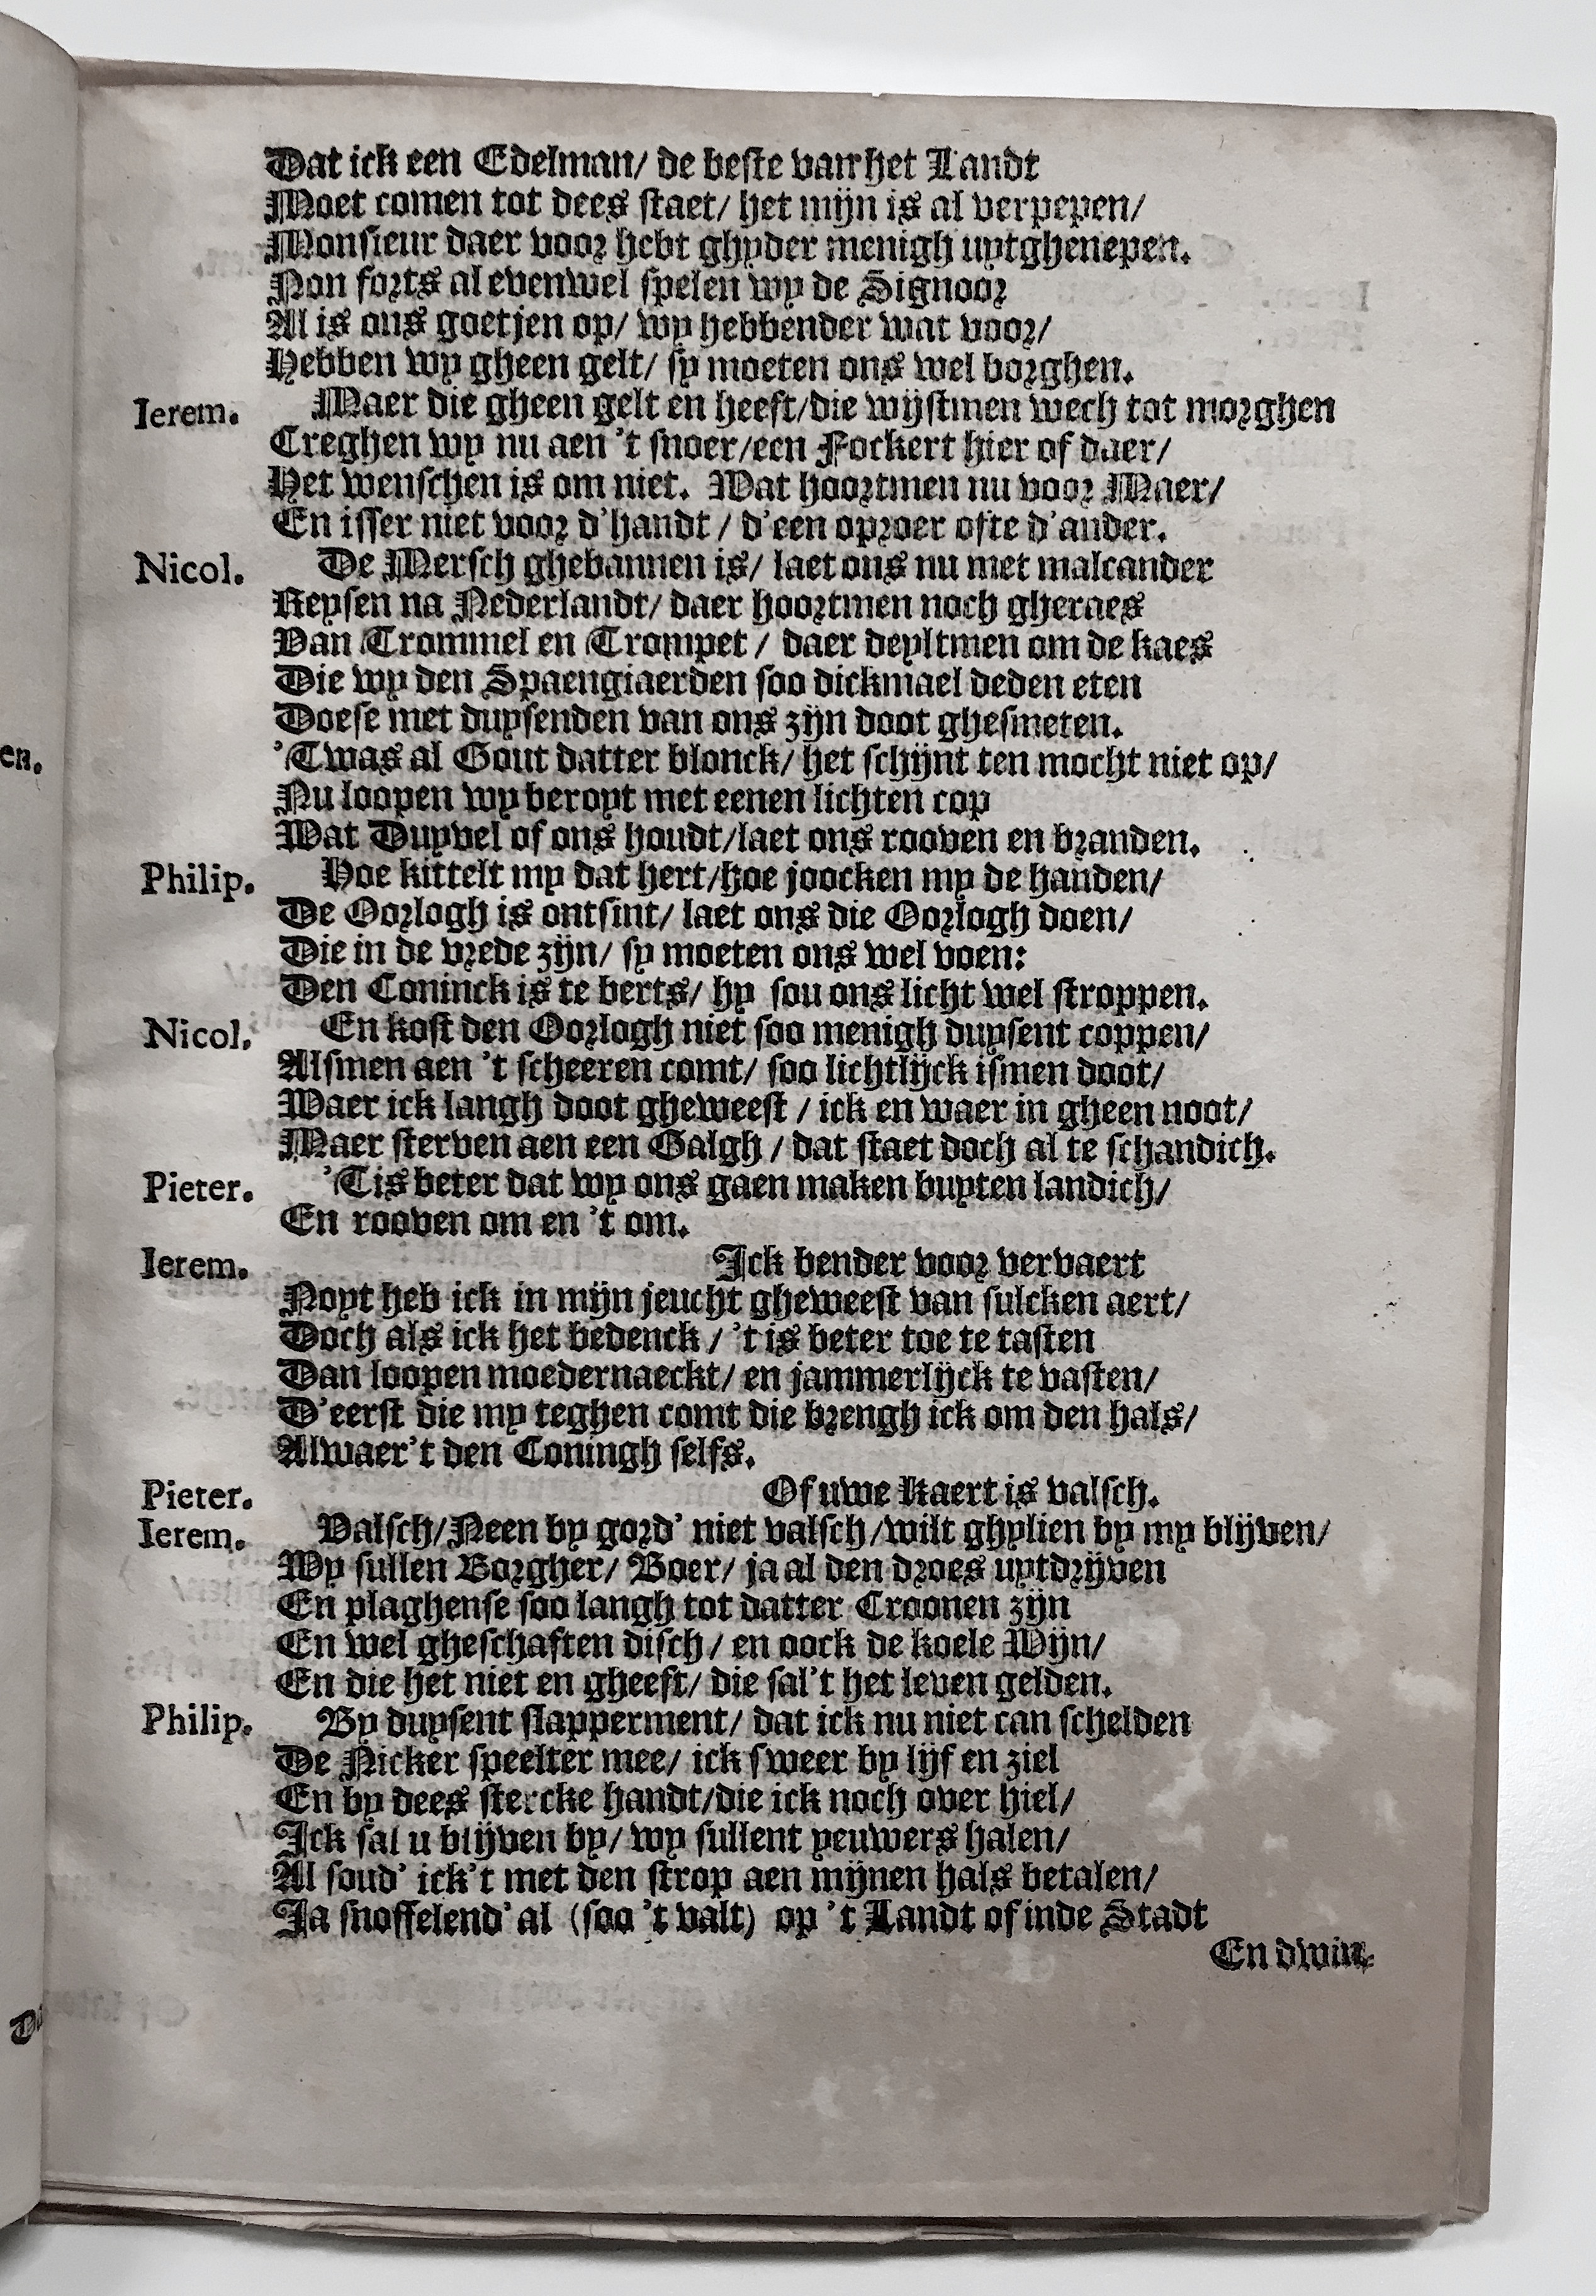 Dat ick een Edelman/ de beste van het Landt
Moet comen tot dees staet/ het mijn is al verpepen/
Monsieur daer voor hebt ghyder menigh uytghenepen.
Non forts al evenwel spelen wy de Signoor
Al is ons goetjen op/ wy hebbender wat voor/
Hebben wy gheen gelt/ sy moeten ons wel borghen.
Ierem. Maer die gheen gelt en heeft/die wijstmen wech tot morghen
Creghen wy nu aen 't snoer/een Fockert hier of daer/
Het wenschen is om niet. Wat hoortmen nu voor Maer/
En isser niet voor d'handt / d'een oproer ofte d'ander.
Nicol. De Mersch ghebannen is/ laet ons nu met malcander
Reysen na Nederlandt/ daer hoortmen noch gheraes
Van Trommel en Trompet / daer deyltmen om de kaes
Die wy den Spaengiaerden soo dickmael deden eten
Doese met duysenden van ons zijn doot ghesmeten.
'Twas al Gout datter blonck/ het schijnt ten mocht niet op/
Nu loopen wy beroyt met eenen lichten cop
Wat Duyvel of ons houdt/laet ons rooven en branden.
Philip. Hoe kittelt my dat hert/hoe joocken my de handen/
De Oorlogh is ontsint/ laet ons die Oorlogh doen/
Die in de vrede zijn/ sy moeten ons wel voen:
Den Coninck is te berts/ hy sou ons licht wel stroppen.
Nicol. En kost den Oorlogh niet soo menigh duysent coppen/
Alsmen aen 't scheeren comt/ soo lichtlijck ismen doot/
Waer ick langh doot gheweest / ick en waer in gheen noot/
Maer sterven aen een Galgh / dat staet doch al te schandich.
Pieter. 'Tis beter dat wy ons gaen maken buyten landich/
En rooven om en 't om.
Ierem. Ick bender voor vervaert
Noyt heb ick in mijn jeucht gheweest van sulcken aert/
Doch als ick het bedenck / 't is beter toe te tasten
Dan loopen moedernaeckt/ en jammerlijck te vasten/
D'eerst die my teghen comt die brengh ick om den hals/
Alwaer't den Coningh selfs.
Pieter. Of uwe Kaert is valsch.
Ierem. Valsch/Neen by gord' niet valsch/wilt ghylien by my blijven/
Wy sullen Borgher/ Boer/ ja al den droes uytdrijven
En plaghense soo langh tot datter Croonen zijn
En wel gheschaften disch/ en oock de koele Wijn/
En die het niet en gheeft/ die sal't het leven gelden.
Philip. By duysent slapperment/ dat ick nu niet can schelden
De Nicker speelter mee/ ick sweer by lijf en ziel
En by dees stercke handt/die ick noch over hiel/
Ick sal u blijven by/ wy sullent yeuwers halen/
Al soud' ick't met den strop aen mijnen hals betalen/
Ja snoffelend' al (soo 't valt) op 't Landt of inde Stadt
En dwin-
en.